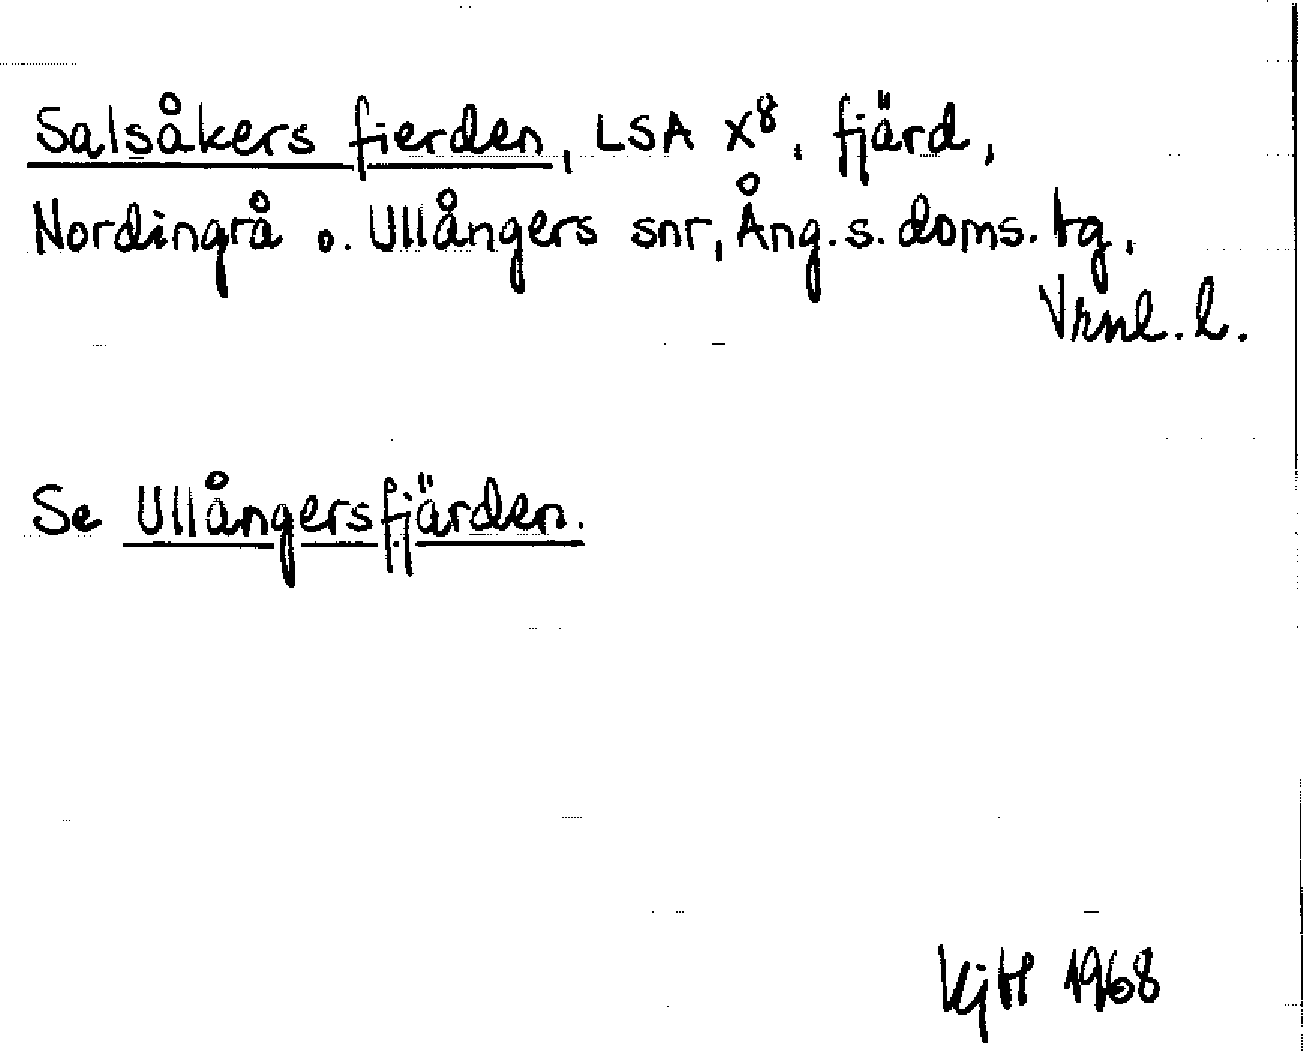 Salsåkers fierden, LSA X⁸, fjärd,
Nordingrå o. Ullångers snr, Ång.s.doms.tg,
Vrnl.l.
Se Ullångersfjärden.
KjH 1968